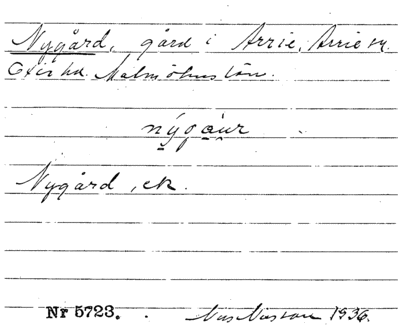 Nygård, gård i Arrie, Arrie sn.
Oxie hd. Malmöhus län.
nýgäur
Nygård, ek.
Nr 5723. Nils Nilsson 1936.